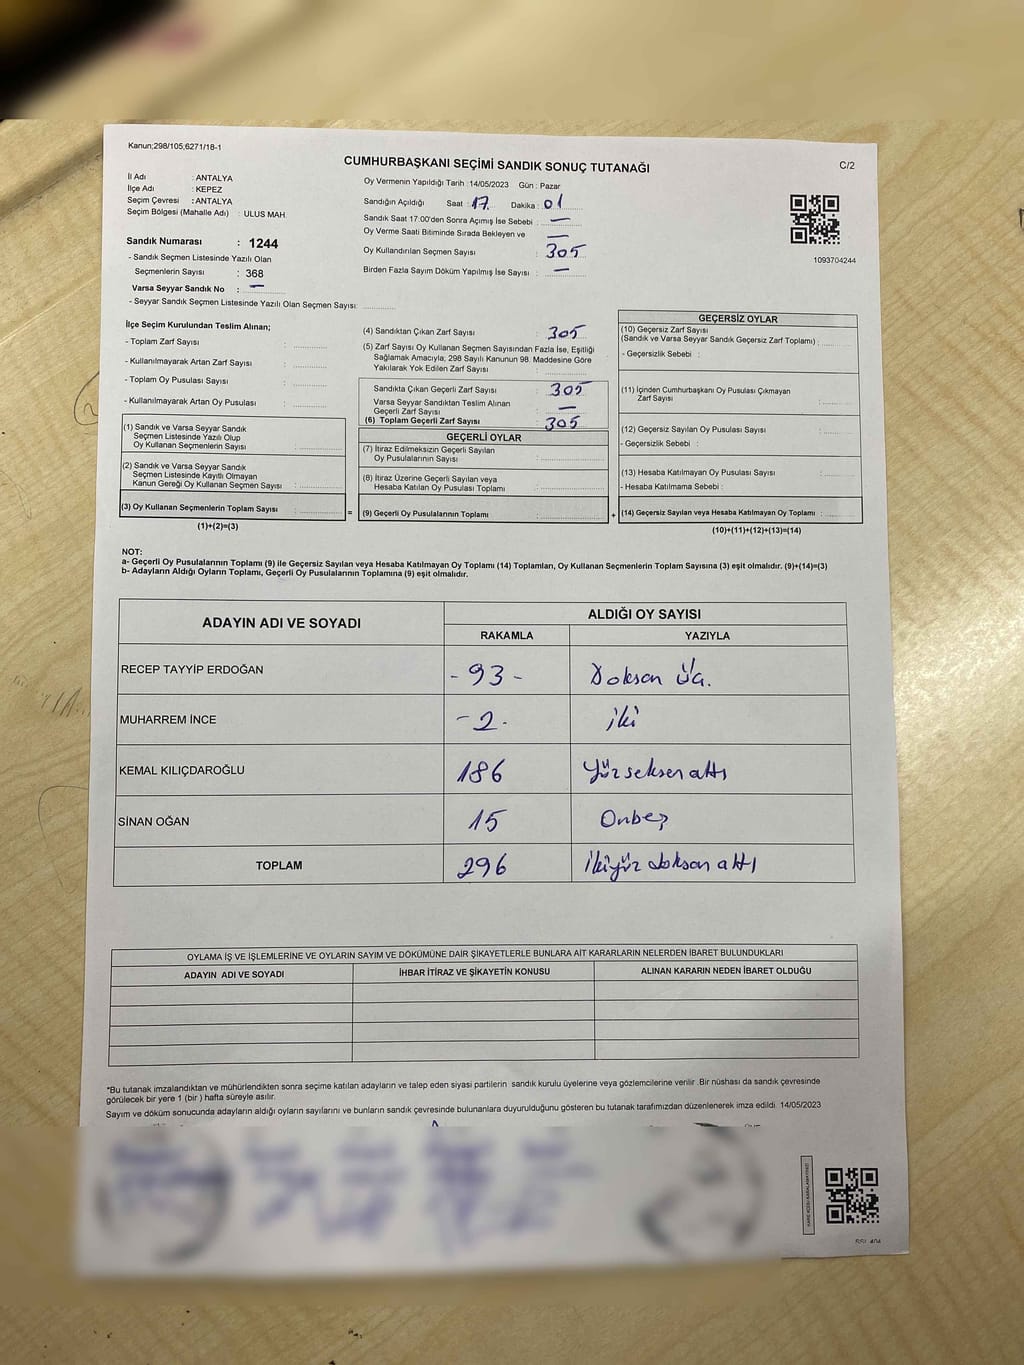 Kanun;298/105,6271/18-1
CUMHURBAŞKANI SEÇİMİ SANDIK SONUÇ TUTANAĞI
C/2
İl Adı : ANTALYA
İlçe Adı : KEPEZ
Seçim Çevresi : ANTALYA
Seçim Bölgesi (Mahalle Adı) : ULUS MAH.
Sandık Numarası : 1244
- Sandık Seçmen Listesinde Yazılı Olan
Seçmenlerin Sayısı : 368
Varsa Seyyar Sandık No : —
- Seyyar Sandık Seçmen Listesinde Yazılı Olan Seçmen Sayısı:
Oy Vermenin Yapıldığı Tarih :14/05/2023 Gün : Pazar
Sandığın Açıldığı Saat : 17. Dakika : 01
Sandık Saat 17:00'den Sonra Açımış İse Sebebi : —
Oy Verme Saati Bitiminde Sırada Bekleyen ve —
Oy Kullandırılan Seçmen Sayısı : 305
Birden Fazla Sayım Döküm Yapılmış İse Sayısı : —
1093704244
İlçe Seçim Kurulundan Teslim Alınan;
- Toplam Zarf Sayısı :
- Kullanılmayarak Artan Zarf Sayısı :
- Toplam Oy Pusulası Sayısı :
- Kullanılmayarak Artan Oy Pusulası :
(1) Sandık ve Varsa Seyyar Sandık
Seçmen Listesinde Yazılı Olup
Oy Kullanan Seçmenlerin Sayısı :
(2) Sandık ve Varsa Seyyar Sandık
Seçmen Listesinde Kayıtlı Olmayan
Kanun Gereği Oy Kullanan Seçmen Sayısı :
(3) Oy Kullanan Seçmenlerin Toplam Sayısı :
(1)+(2)=(3)
=
(4) Sandıktan Çıkan Zarf Sayısı : 305
(5) Zarf Sayısı Oy Kullanan Seçmen Sayısından Fazla İse, Eşitliği
Sağlamak Amacıyla; 298 Sayılı Kanunun 98. Maddesine Göre
Yakılarak Yok Edilen Zarf Sayısı :
Sandıkta Çıkan Geçerli Zarf Sayısı : 305
Varsa Seyyar Sandıktan Teslim Alınan
Geçerli Zarf Sayısı : —
(6) Toplam Geçerli Zarf Sayısı : 305
GEÇERLİ OYLAR
(7) İtiraz Edilmeksizin Geçerli Sayılan
Oy Pusulalarının Sayısı :
(8) İtiraz Üzerine Geçerli Sayılan veya
Hesaba Katılan Oy Pusulası Toplamı :
(9) Geçerli Oy Pusulalarının Toplamı :
+
GEÇERSİZ OYLAR
(10) Geçersiz Zarf Sayısı
(Sandık ve Varsa Seyyar Sandık Geçersiz Zarf Toplamı) :
- Geçersizlik Sebebi :
(11) İçinden Cumhurbaşkanı Oy Pusulası Çıkmayan
Zarf Sayısı :
(12) Geçersiz Sayılan Oy Pusulası Sayısı :
- Geçersizlik Sebebi :
(13) Hesaba Katılmayan Oy Pusulası Sayısı :
- Hesaba Katılmama Sebebi :
(14) Geçersiz Sayılan veya Hesaba Katılmayan Oy Toplamı :
(10)+(11)+(12)+(13)=(14)
NOT:
a- Geçerli Oy Pusulalarının Toplamı (9) ile Geçersiz Sayılan veya Hesaba Katılmayan Oy Toplamı (14) Toplamları, Oy Kullanan Seçmenlerin Toplam Sayısına (3) eşit olmalıdır. (9)+(14)=(3)
b- Adayların Aldığı Oyların Toplamı, Geçerli Oy Pusulalarının Toplamına (9) eşit olmalıdır.
ADAYIN ADI VE SOYADI
ALDIĞI OY SAYISI
RAKAMLA YAZIYLA
RECEP TAYYİP ERDOĞAN - 93 - Doksan üç.
MUHARREM İNCE - 2 - iki
KEMAL KILIÇDAROĞLU 186 Yüz seksen altı
SİNAN OĞAN 15 Onbeş
TOPLAM 296 İkiyüz doksan altı
OYLAMA İŞ VE İŞLEMLERİNE VE OYLARIN SAYIM VE DÖKÜMÜNE DAİR ŞİKAYETLERLE BUNLARA AİT KARARLARIN NELERDEN İBARET BULUNDUKLARI
ADAYIN ADI VE SOYADI İHBAR İTİRAZ VE ŞİKAYETİN KONUSU ALINAN KARARIN NEDEN İBARET OLDUĞU
*Bu tutanak imzalandıktan ve mühürlendikten sonra seçime katılan adayların ve talep eden siyasi partilerin sandık kurulu üyelerine veya gözlemcilerine verilir. Bir nüshası da sandık çevresinde
görülecek bir yere 1 (bir) hafta süreyle asılır.
Sayım ve döküm sonucunda adayların aldığı oyların sayılarını ve bunların sandık çevresinde bulunanlara duyurulduğunu gösteren bu tutanak tarafımızdan düzenlenerek imza edildi. 14/05/2023